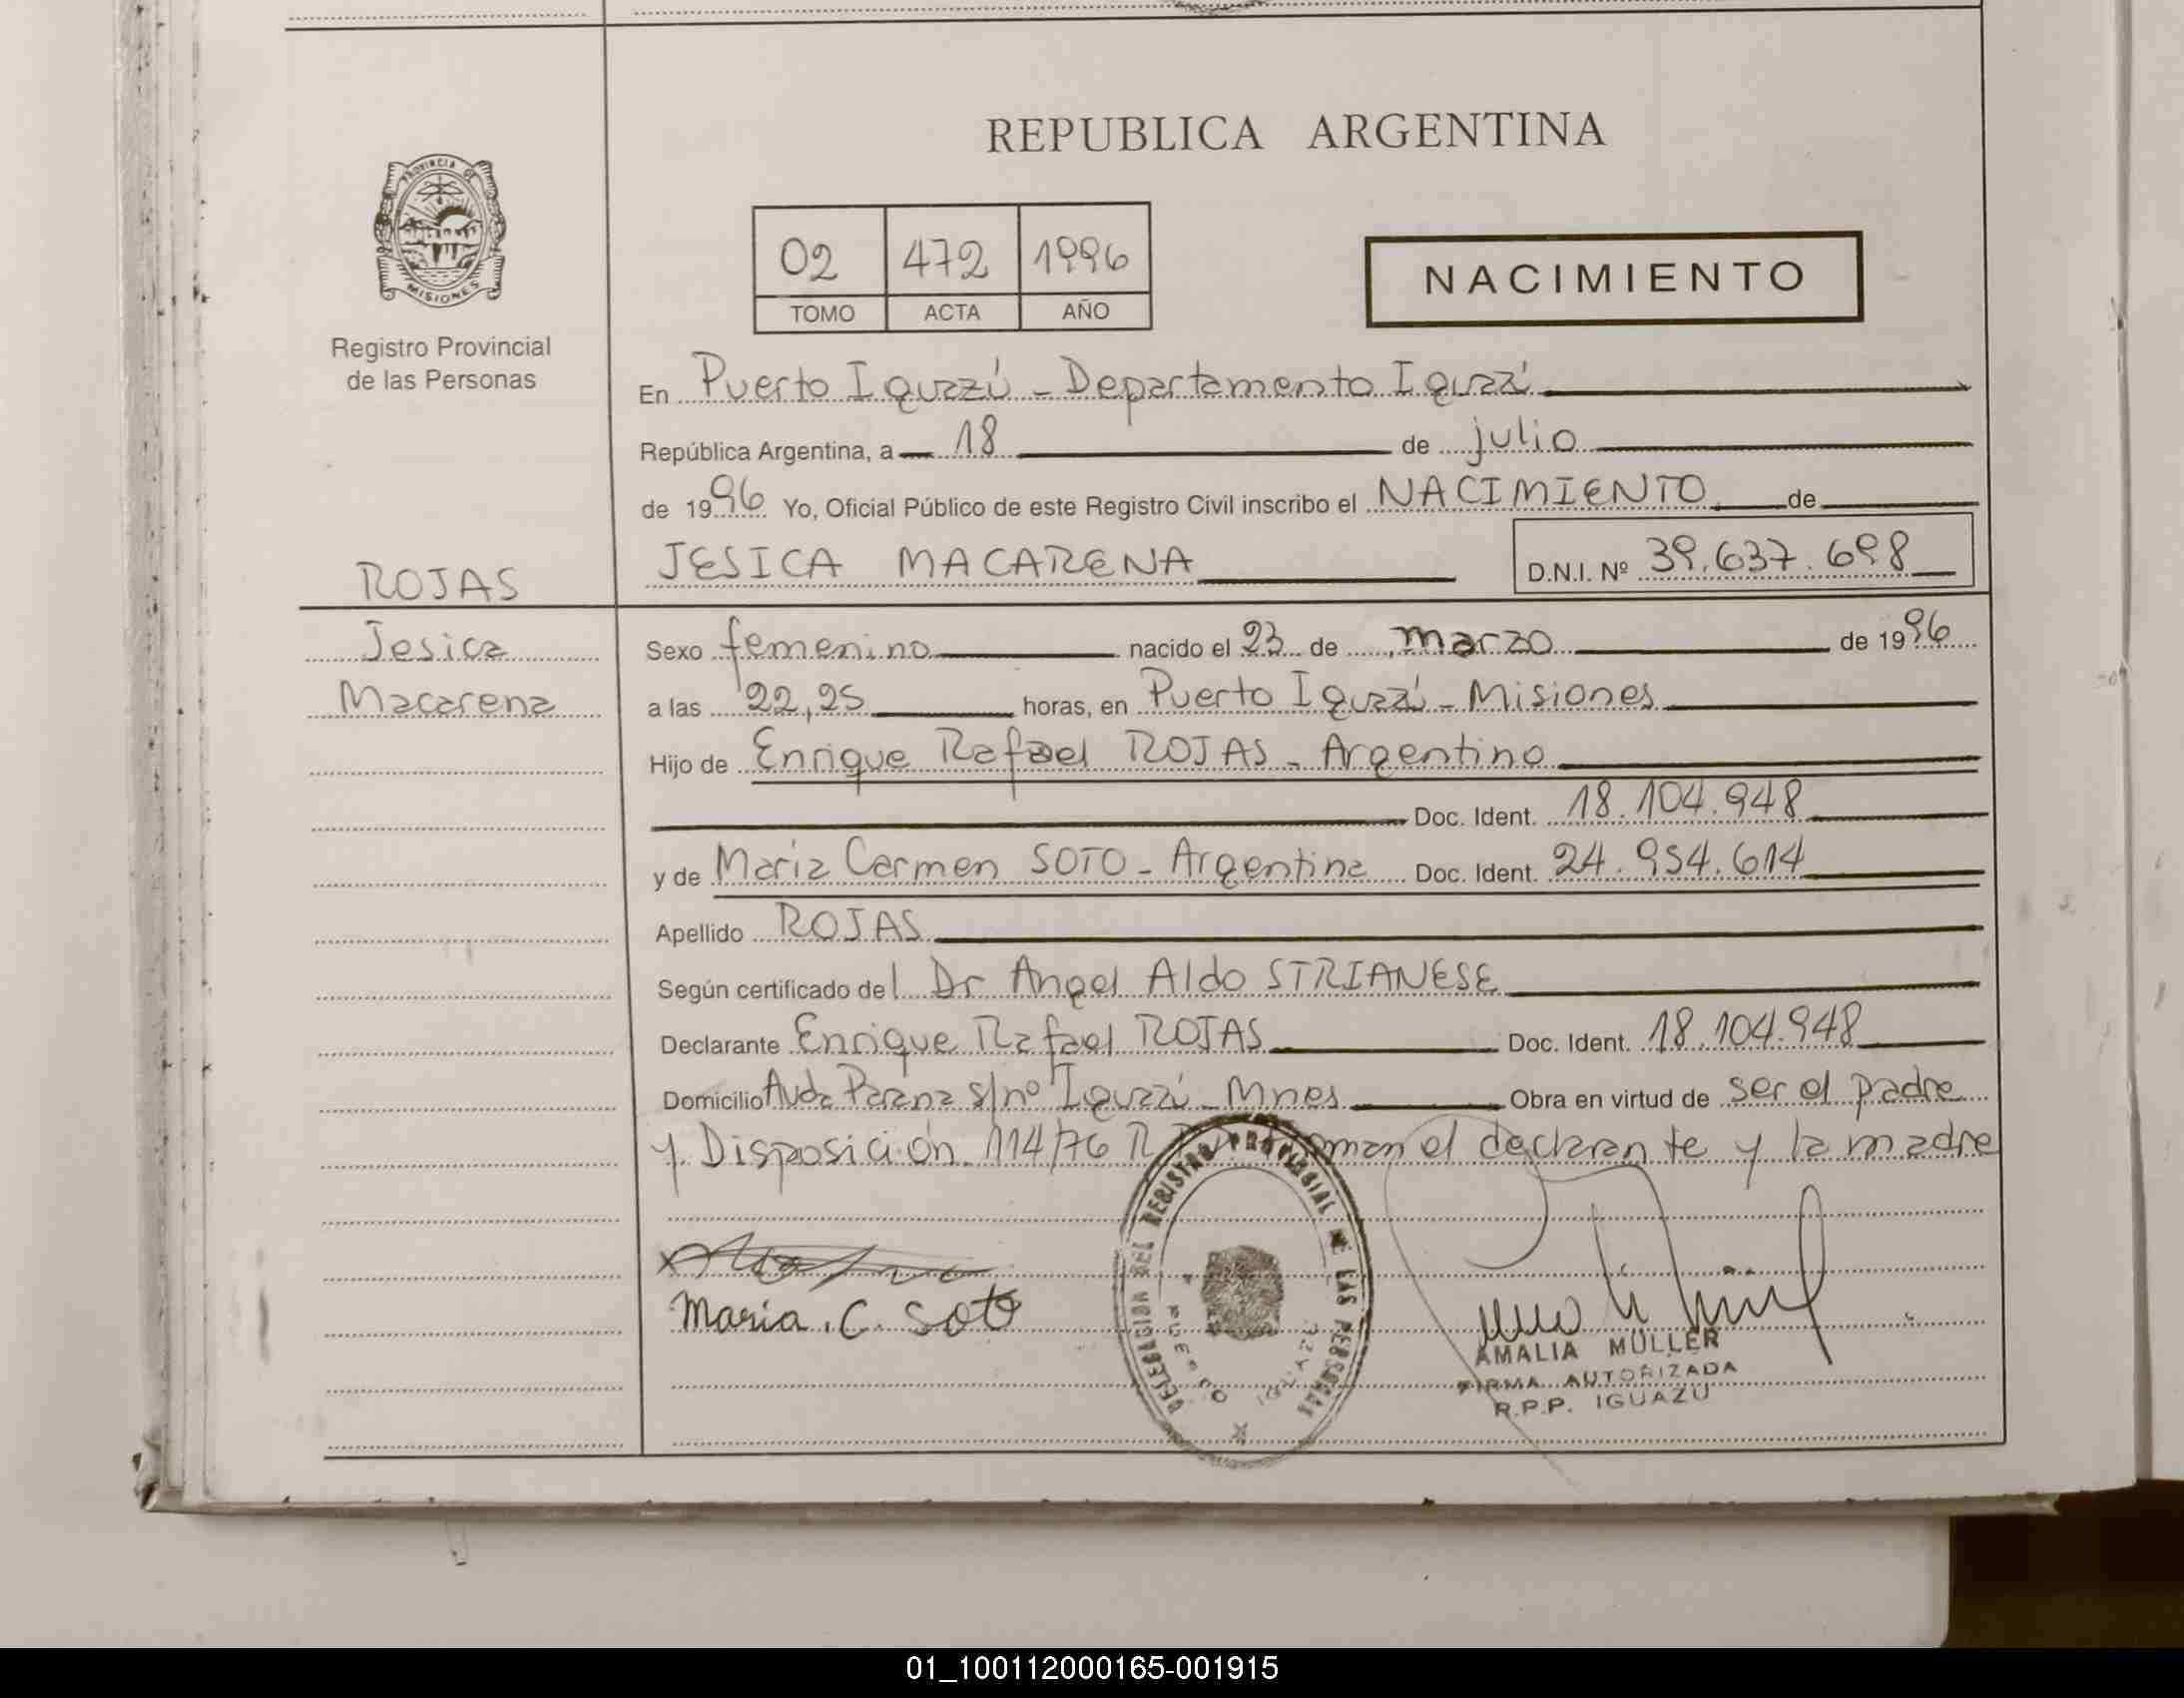 REPUBLICA ARGENTINA
PROVINCIA DE
MISIONES
Registro Provincial
de las Personas
02 472 1996
TOMO ACTA AÑO
NACIMIENTO
En Puerto Iguazú - Departamento Iguazú
República Argentina, a 18 de julio
de 1996 Yo, Oficial Público de este Registro Civil inscribo el NACIMIENTO de
ROJAS
JESICA MACARENA
D.N.I. Nº 39.637.698
Jesica
Macarena
Sexo femenino nacido el 23 de marzo de 1996
a las 22,25 horas, en Puerto Iguazú - Misiones
Hijo de Enrique Rafael ROJAS - Argentino
Doc. Ident. 18.104.948
y de Maria Carmen SOTO - Argentina Doc. Ident. 24.954.614
Apellido ROJAS
Según certificado del Dr Angel Aldo STRIANESE
Declarante Enrique Rafael ROJAS Doc. Ident. 18.104.948
Domicilio Avda Parana s/nº Iguazú - Mnes Obra en virtud de ser el padre
y Disposición 114/76 el declarante y la madre
DELEGACION DEL REGISTRO PROVINCIAL DE LAS PERSONAS
PUERTO IGUAZU
Maria. C. Soto
AMALIA MÜLLER
FIRMA AUTORIZADA
R.P.P. IGUAZU
01_100112000165-001915